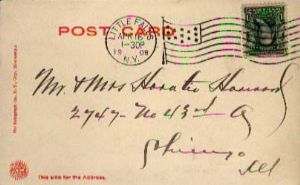 POST CARD
LITTLE FALLS
APR 16
1-30P
1908
N.Y.
Mr. & Mrs Horatio Howard
2747- No 43rd A
Chicago
Ill
This side for the Address.